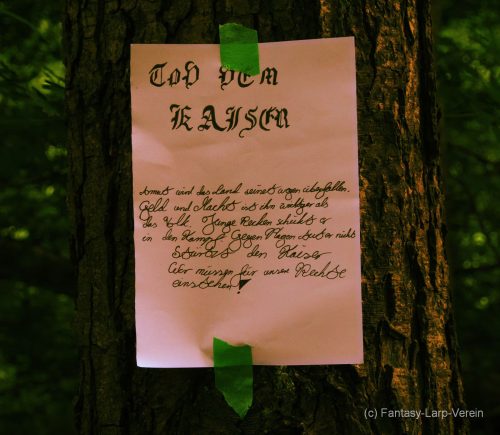 Tod dem
Kaiser
wird das Land seinet wegen überfallen.
Geld und Macht ist ihm wichtiger als
das Volk. Junge Recken schickt er
in den Kampf. Gegen Plagen tut er nicht
Stürtzt den Kaiser
Wir müssen für unsere Rechte
einstehen!
(c) Fantasy-Larp-Verein